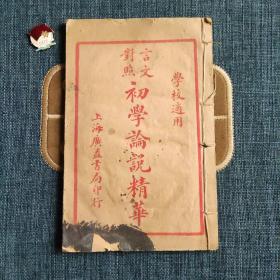 學校適用
言文對照
初學論說精華
上海廣益書局印行